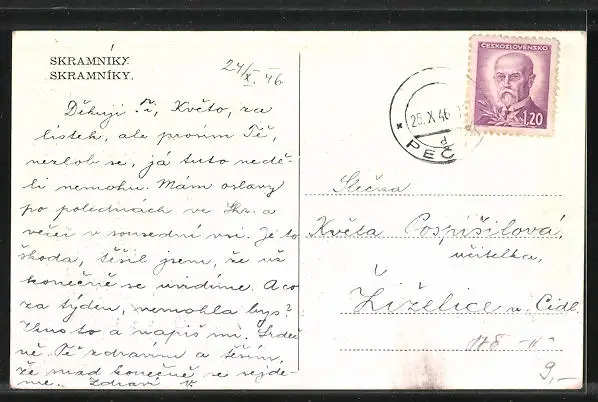 SKRAMNÍKY.
SKRAMNÍKY.
24/X. 46
Děkuji Ti, Květo, za
lístek, ale prosím Tě,
nezlob se, já tuto nedě-
li nemohu. Mám oslavy
po poledních ve Skr. a
večer v sousední vsi. Je to
škoda, těšil jsem, že už
konečně se uvidíme. A co
za týden, nemohla bys?
to a napiš mi. Srdeč
ně Tě zdravím a těším,
že snad konečně se sejde-
me. Zdraví V.
ČESKOSLOVENSKO
1.20
25.X.46
d
PEČ
Slečna
Květa Pospíšilová,
učitelka,
Žiželice n. Cidl.
9,-